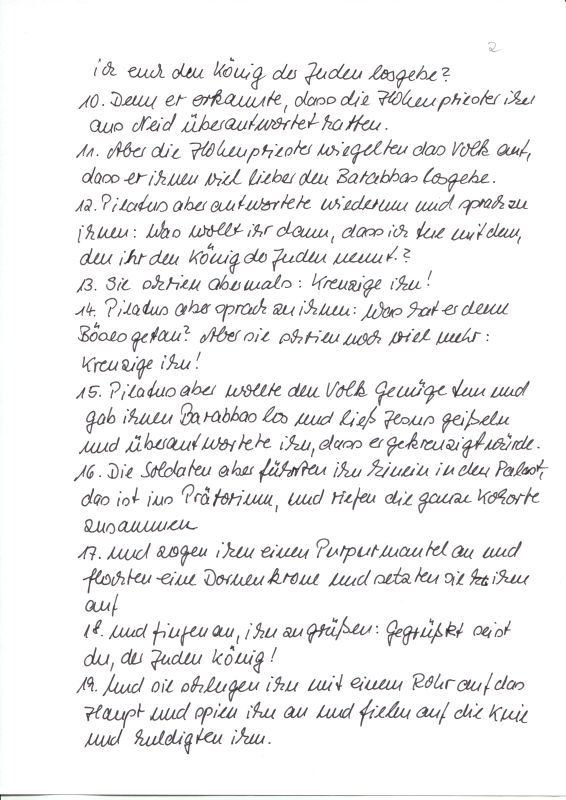 2
ich euch den König der Juden losgebe?
10. Denn er erkannte, dass die Hohenpriester ihn
aus Neid überantwortet hatten.
11. Aber die Hohenpriester wiegelten das Volk auf,
dass er ihnen viel lieber den Barabbas losgebe.
12. Pilatus aber antwortete wiederum und sprach zu
ihnen: Was wollt ihr dann, dass ich tue mit dem,
den ihr den König der Juden nennt.?
13. Sie schrien abermals: Kreuzige ihn!
14. Pilatus aber sprach zu ihnen: Was hat er denn
Böses getan? Aber sie schrien noch viel mehr:
Kreuzige ihn!
15. Pilatus aber wollte den Volk Genüge tun und
gab ihnen Barabbas los und ließ Jesus geißeln
und überantwortete ihn, dass er gekreuzigt würde.
16. Die Soldaten aber führten ihn hinein in den Palast,
das ist ins Prätorium, und riefen die ganze Kohorte
zusammen
17. und zogen ihm einen Purpurmantel an und
flochten eine Dornenkrone und setzten sie ihm
auf
18. und fingen an, ihn zu grüßen: Gegrüßt seist
du, der Juden König!
19. Und sie schlugen ihn mit einem Rohr auf das
Haupt und spien ihn an und fielen auf die Knie
und huldigten ihm.